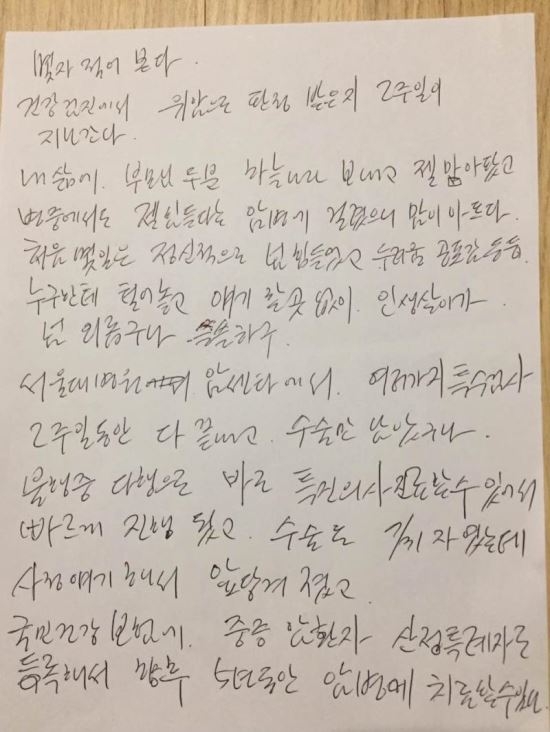 몇자 적어 본다.
건강검진에서 위암으로 판정 받은지 2주일이
지나간다.
내 삶에. 부모님 두분 하늘나라 보내고 젤 맘 아팠고
병중에서도 젤 힘들다는 암병에 걸렸으니 맘이 아프다.
처음 몇일은 정신적으로 넘 힘들었고 두려움 공포감 등등.
누구한테 털어놓고 얘기 할곳 없이. 인생살이가
넘 외롭구나 쓸쓸하구.
서울대병원 암센타에서. 여러가지 특수검사
2주일동안 다 끝내고. 수술만 남았구나.
불행중 다행으로 바로 특진의사 진료할수 있어서
빠르게 진행 됐고. 수술도 자였는데
사정얘기 해서 앞당겨 졌고.
국민건강보험에. 중증 암환자 산정특례자로
등록해서 향후 5년동안 암병에 치료할수있다